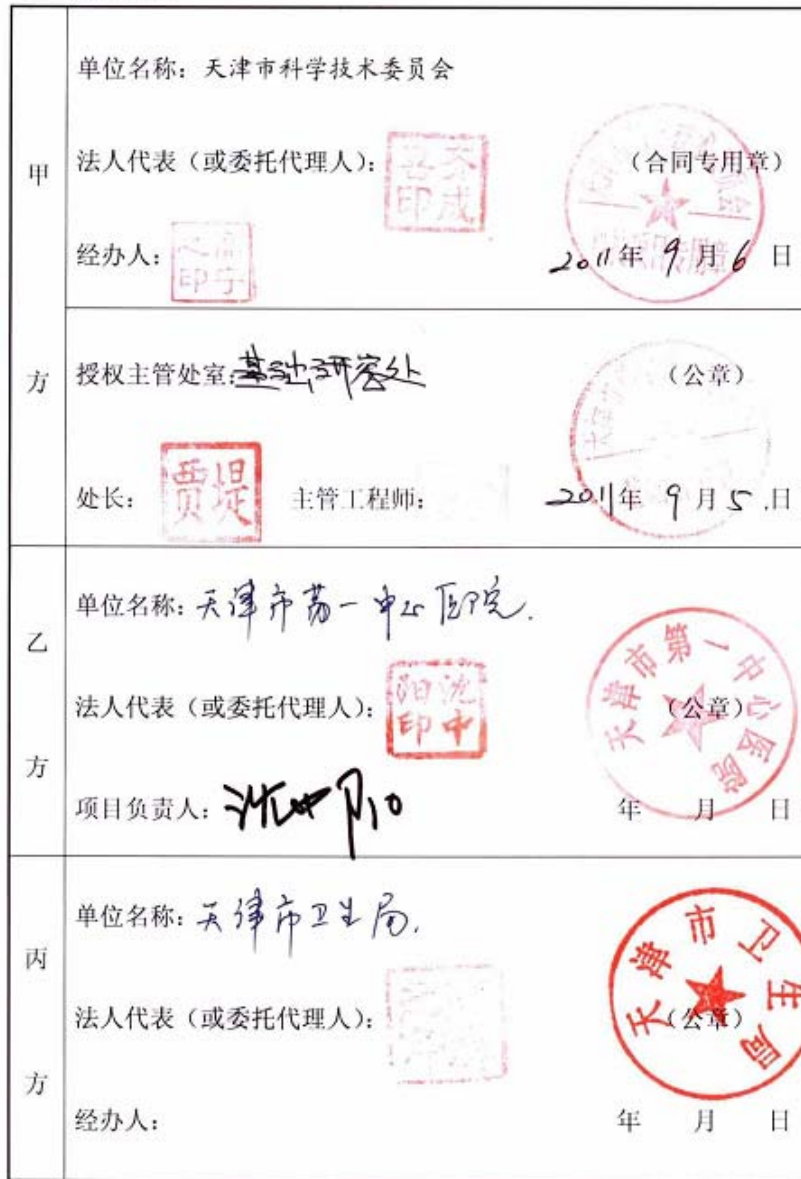 甲方
单位名称：天津市科学技术委员会
法人代表（或委托代理人）：
（合同专用章）
经办人：
2011年 9月6日
授权主管处室：基础研究处
（公章）
处长：贾堤 主管工程师：
2011年 9月5日
乙方
单位名称：天津市第一中心医院.
法人代表（或委托代理人）：沈中阳印
天津市第一中心医院
（公章）
项目负责人：沈中阳
年 月 日
丙方
单位名称：天津市卫生局.
天津市卫生局
法人代表（或委托代理人）：
（公章）
经办人：
年 月 日